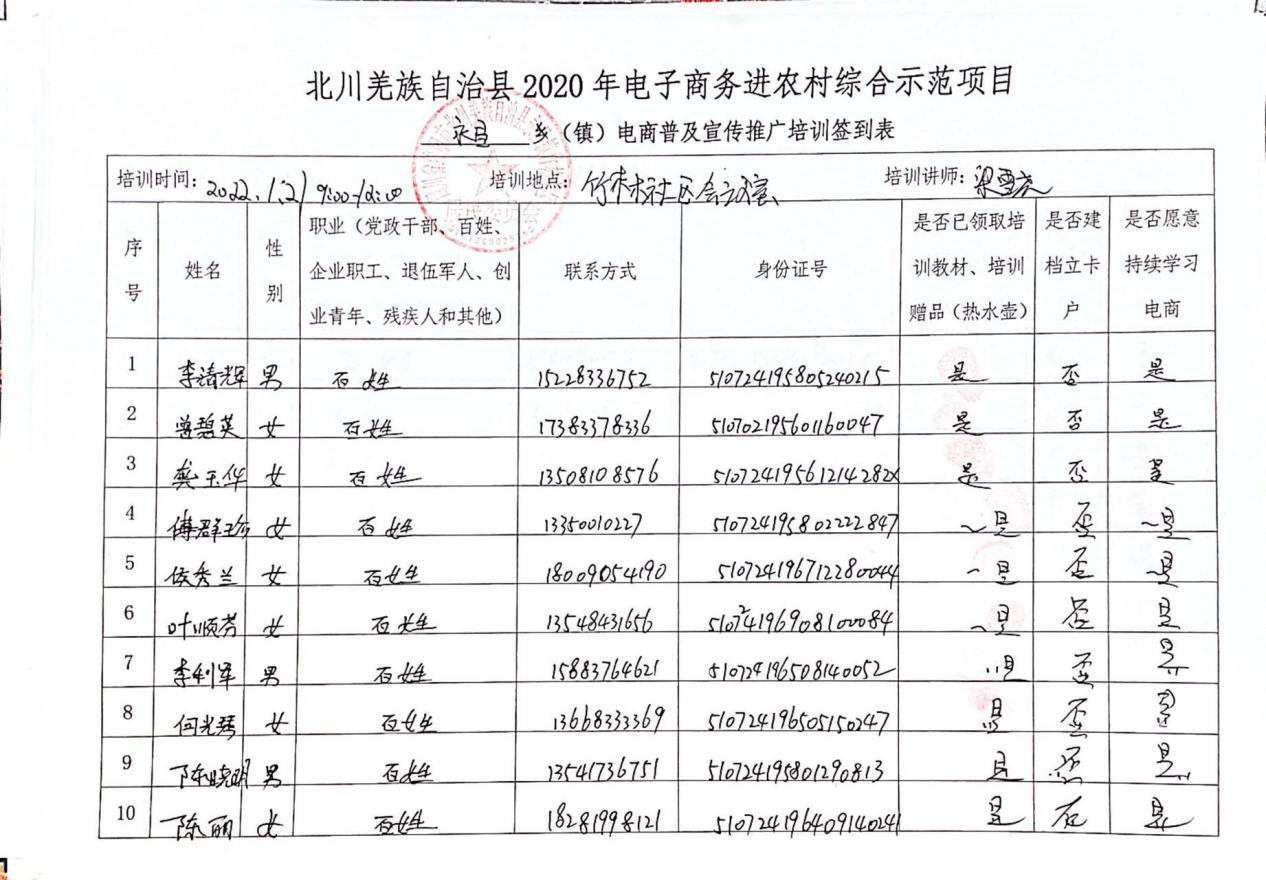 北川羌族自治县2020年电子商务进农村综合示范项目
永昌 乡（镇）电商普及宣传推广培训签到表
培训时间：2022.1.21 9:00-12:00 培训地点：竹林社区会议室 培训讲师：梁雪尧
序号 姓名 性别 职业（党政干部、百姓、企业职工、退伍军人、创业青年、残疾人和其他） 联系方式 身份证号 是否已领取培训教材、培训赠品（热水壶） 是否建档立卡户 是否愿意持续学习电商
1 李清辉 男 百姓 15228336752 510724195805240215 是 否 是
2 曾碧英 女 百姓 17383378336 510702195601160047 是 否 是
3 龚玉华 女 百姓 13508108576 51072419561214282X 是 否 是
4 傅群珍 女 百姓 13350010227 510724195802222847 是 否 是
5 侯秀兰 女 百姓 18009054190 510724196712280044 是 否 是
6 叶顺芬 女 百姓 13548431656 510724196908100084 是 否 是
7 李利军 男 百姓 15883764621 510724196508140052 是 否 是
8 何光琴 女 百姓 13668333369 510724196505150247 是 否 是
9 陈晓明 男 百姓 13541736751 510724195801290813 是 否 是
10 陈丽 女 百姓 18281998121 510724196409140241 是 否 是